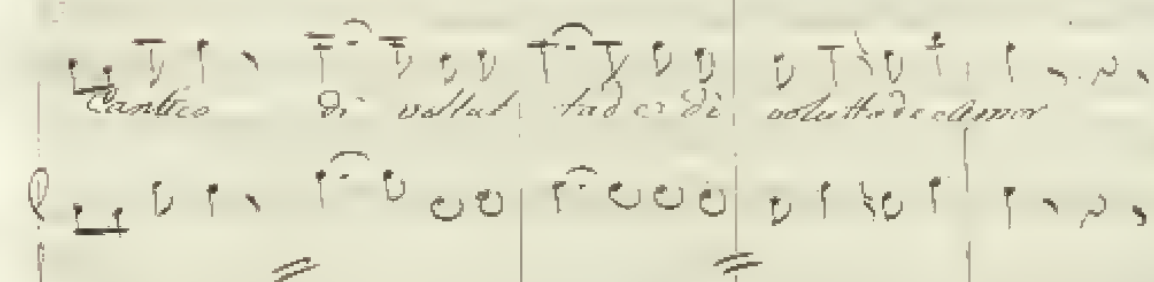 Cantico di voluttade di voluttade e amor